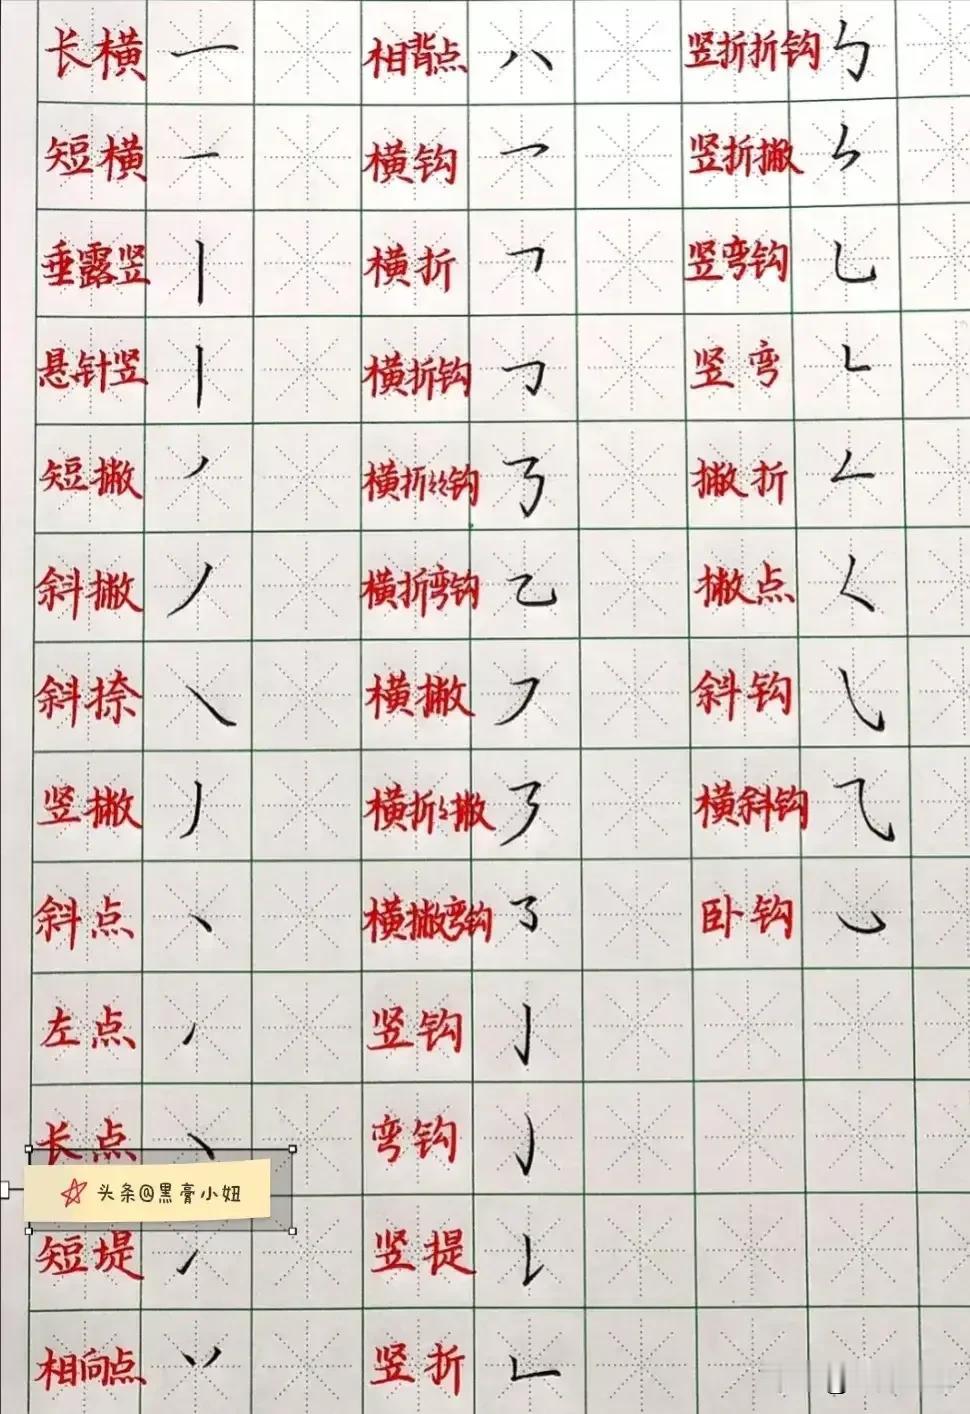 长横 一 相背点 八 竖折折钩 ㄣ
短横 一 横钩 乛 竖折撇 ㄣ
垂露竖 丨 横折 𠃍 竖弯钩 乚
悬针竖 丨 横折钩 𠃌 竖弯 ㄴ
短撇 ノ 横折折折钩 𠄎 撇折 𠃋
斜撇 丿 横折弯钩 乙 撇点 𡿨
斜捺 ㇏ 横撇 ㇇ 斜钩 ㇂
竖撇 丿 横折折撇 ㇋ 横斜钩 ⺄
斜点 丶 横撇弯钩 ㇌ 卧钩 ㇃
左点 ㇒ 竖钩 亅
长点 ㇏ 弯钩 ㇁
头条@黑膏小妞
短堤 ㇀ 竖提 𠄌
相向点 丷 竖折 𠃊